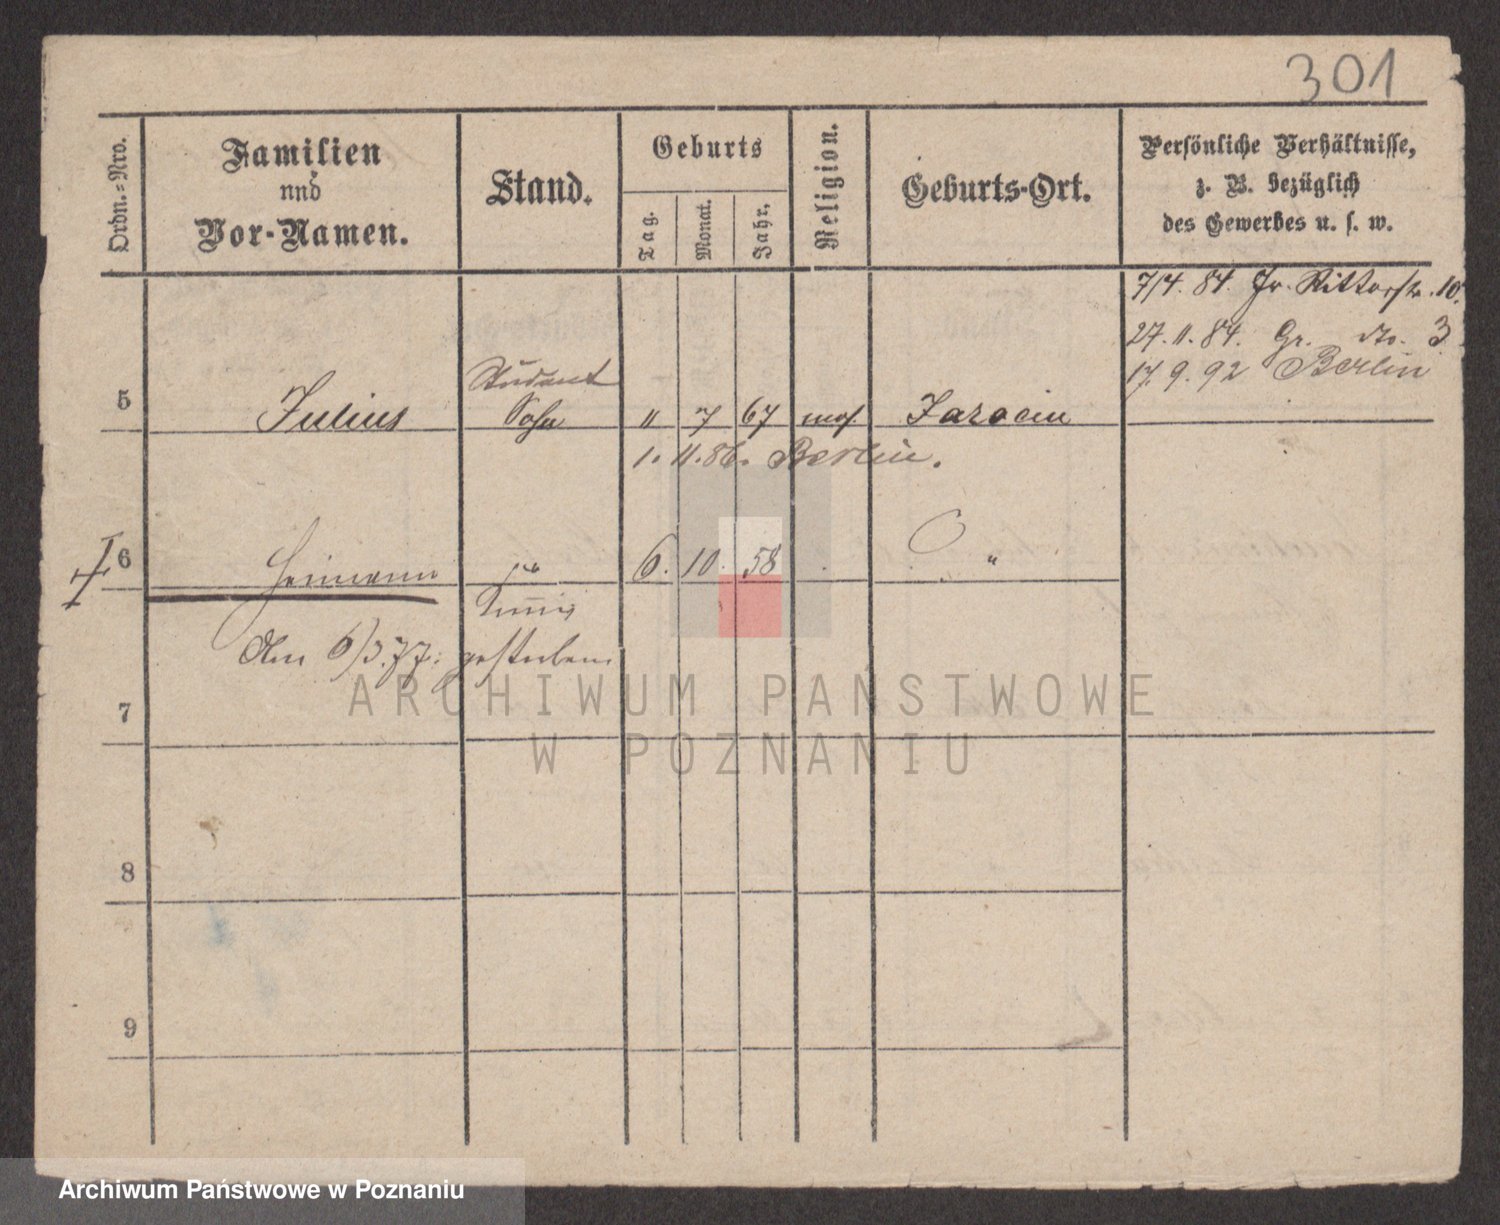 301
Ordn.=Nro.
Familien
und
Vor-Namen.
Stand.
Geburts
Tag.
Monat.
Jahr.
Religion.
Geburts-Ort.
Persönliche Verhältnisse,
z. B. bezüglich
des Gewerbes u. s. w.
7/4. 84. Gr. Ritterstr. 10.
27. 11. 84. Gr. dto. 3
17. 9. 92 Berlin
Student
5 Julius Sohn 11 7 67 mos. Jarocin
1. 11. 86. Berlin.
6 Heimann 6. 10. 58 "
Am 6/3. 77. gestorben
7
ARCHIWUM PAŃSTWOWE
W POZNANIU
8
9
Archiwum Państwowe w Poznaniu